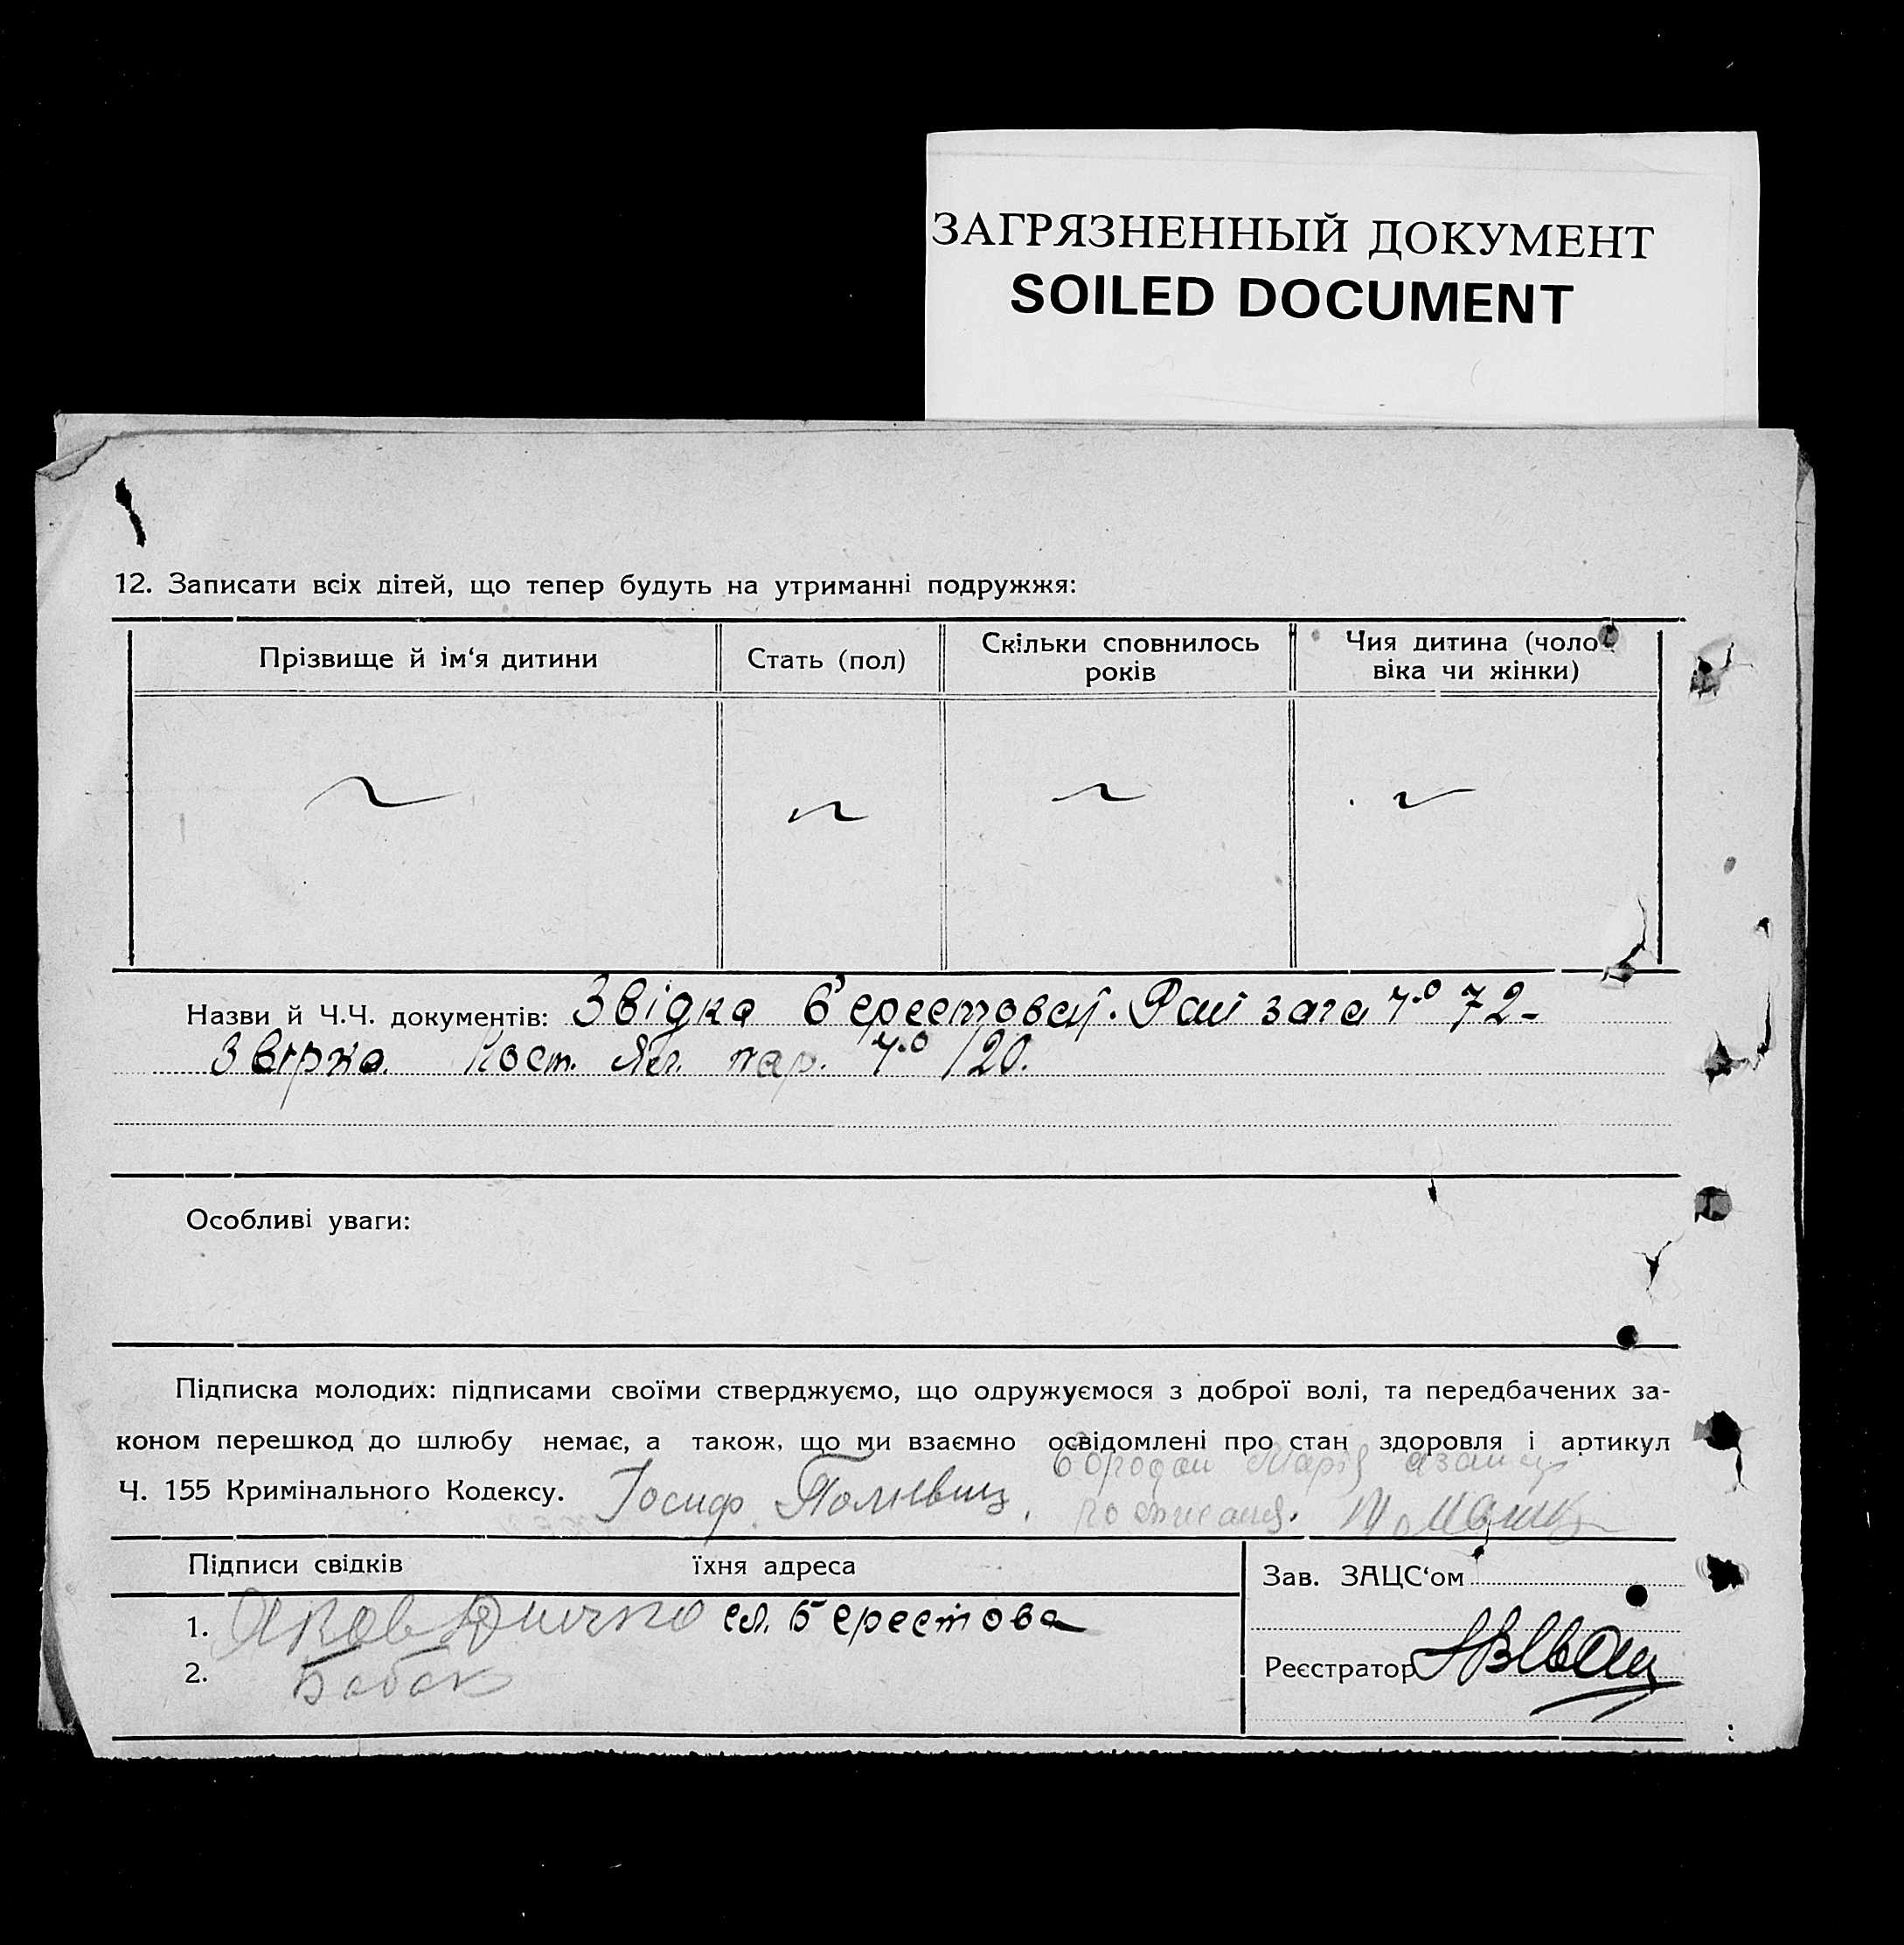 ЗАГРЯЗНЕННЫЙ ДОКУМЕНТ
SOILED DOCUMENT
12. Записати всіх дітей, що тепер будуть на утриманні подружжя:
Прізвище й ім‘я дитини
Стать (пол)
Скільки сповнилось
років
Чия дитина (чоло
віка чи жінки)
Назви й Ч.Ч. документів: Звідка Берестовоị. Рай зага 72-
Звірка 120.
Особливі уваги:
Підписка молодих: підписами своїми стверджуємо, що одружуємося з доброї волі, та передбачених за-
коном перешкод до шлюбу немає, а також, що ми взаємно освідомлені про стан здоровля і артикул
Ч. 155 Кримінального Кодексу. Іосиф
Марія
Підписи свідків їхня адреса
1. Яков сл. Берестова
2. Бабак
Зав. ЗАЦС‘ом
Реєстратор